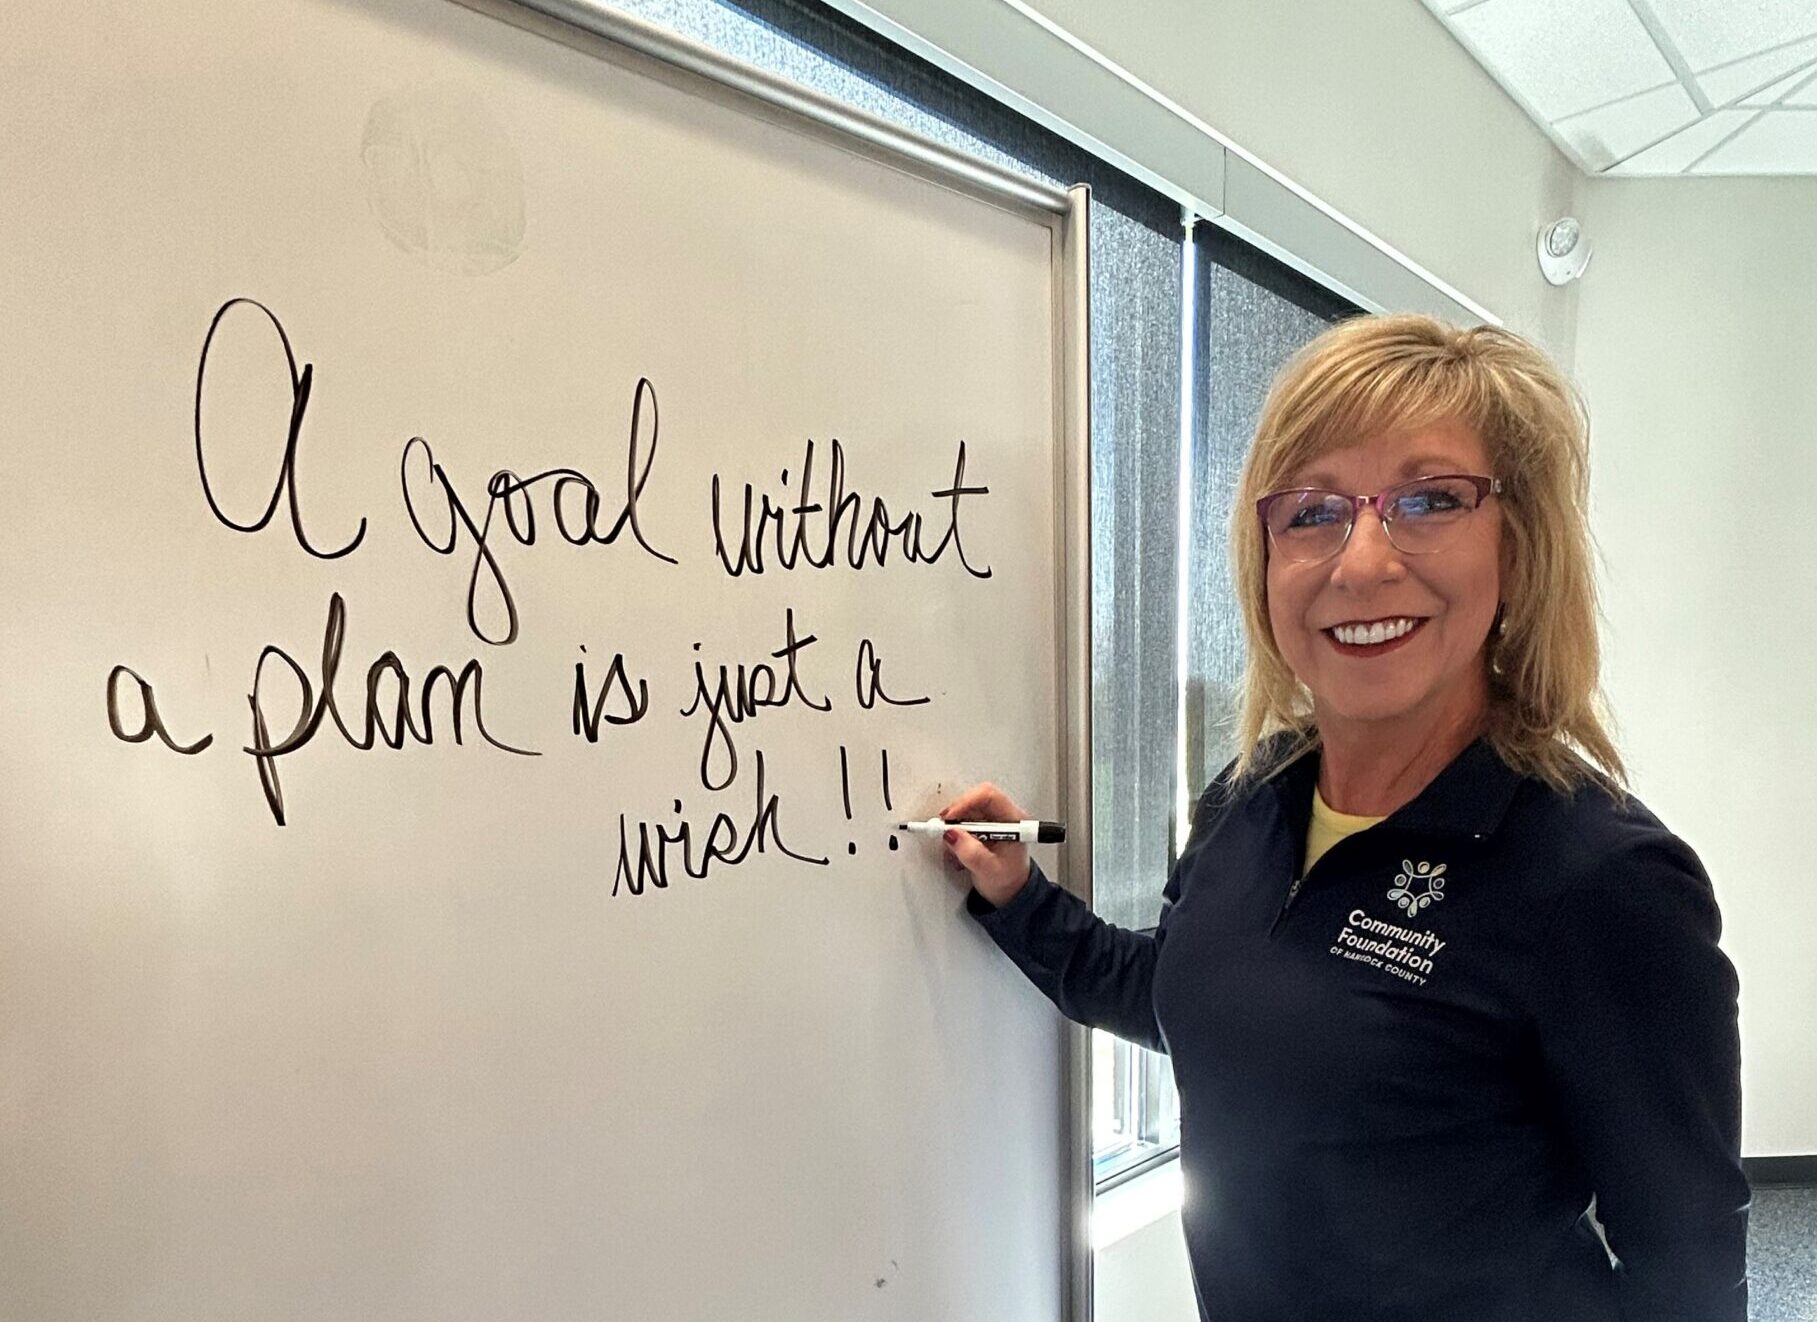 A goal without
a plan is just a
wish!!
Community
Foundation
OF HANCOCK COUNTY